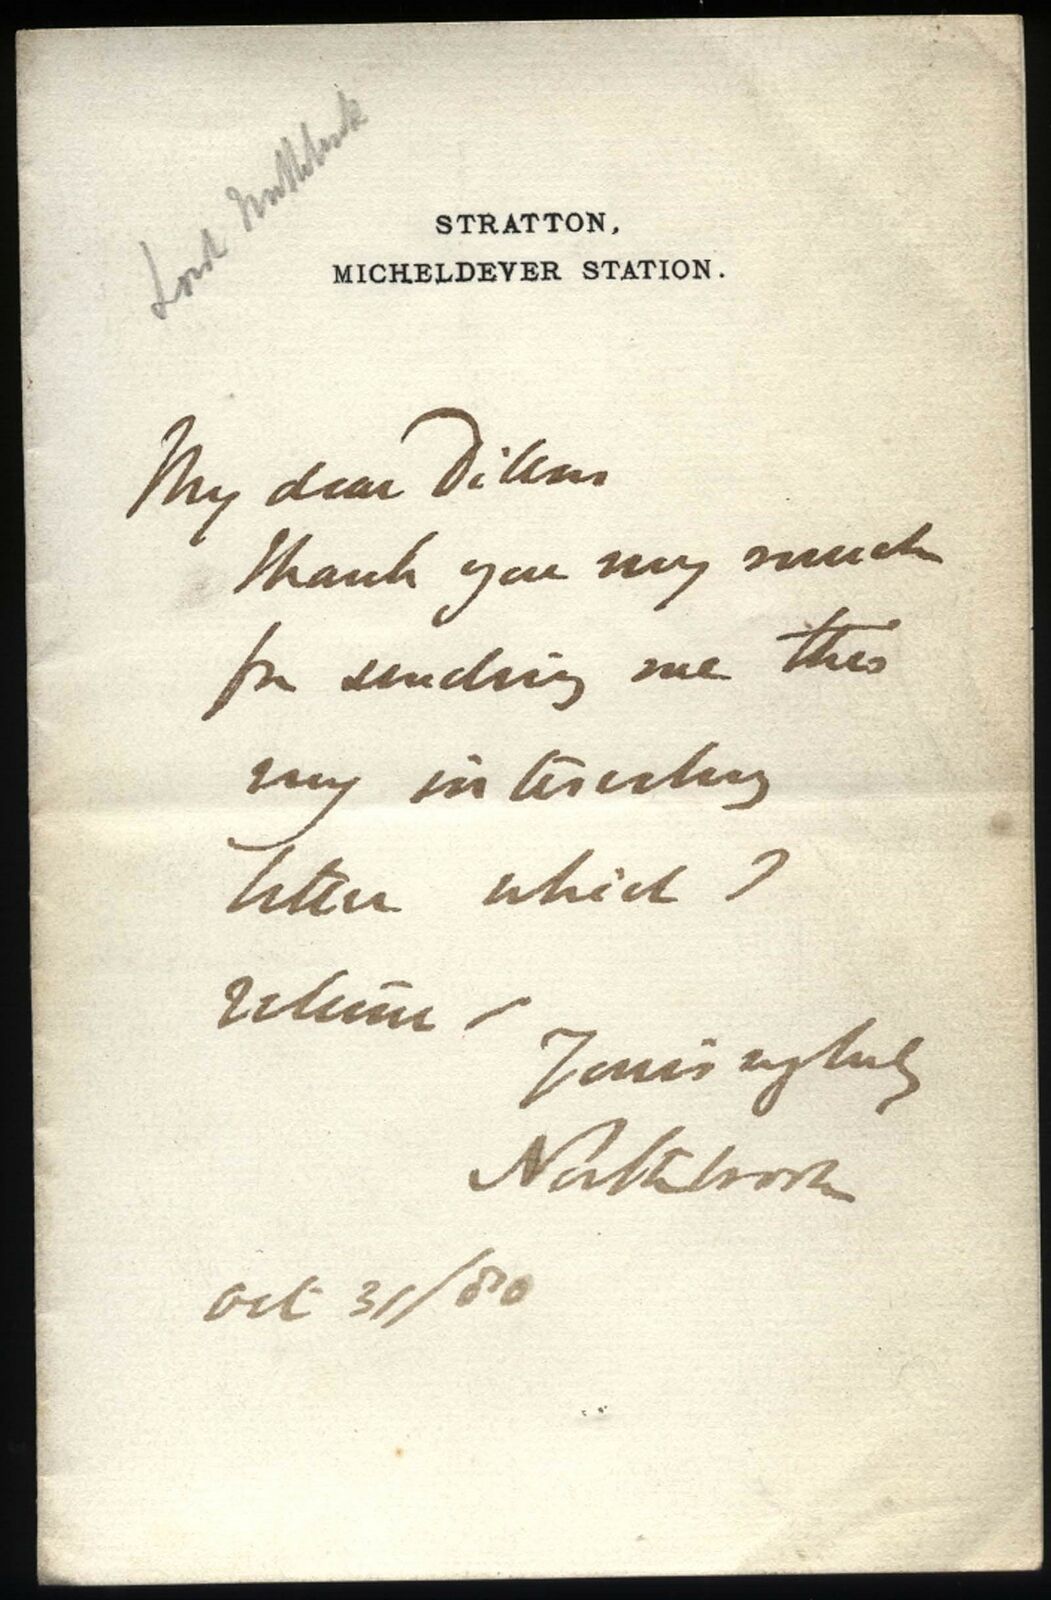 Lord Northbrook
STRATTON,
MICHELDEVER STATION.
My dear
Thank you very much
for sending me this
very interesting
letter which I
return –
Yours
Northbrook
Oct 31/80